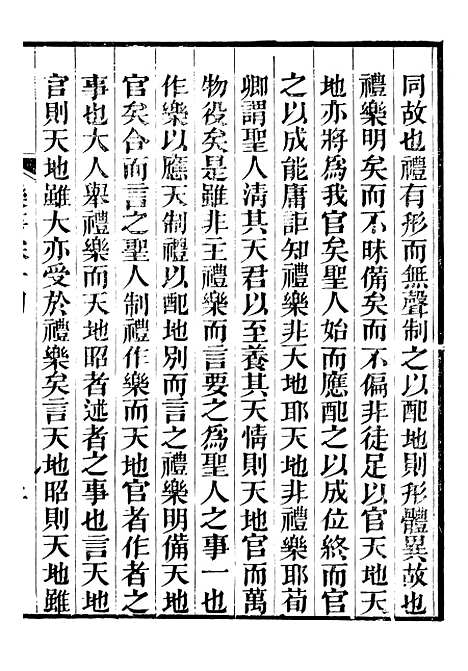 同故也禮有形而無聲制之以配地則形體異故也
禮樂明矣而不昧備矣而不偏非徒足以官天地天
地亦將爲我官矣聖人始而應配之以成位終而官
之以成能庸詎知禮樂非天地耶天地非禮樂耶荀
卿謂聖人淸其天君以至養其天情則天地官而萬
物役矣是雖非主禮樂而言要之爲聖人之事一也
作樂以應天制禮以配地別而言之禮樂明備天地
官矣合而言之聖人制禮作樂而天地官者作者之
事也大人舉禮樂而天地昭者述者之事也言天地
官則天地雖大亦受於禮樂矣言天地昭則天地雖